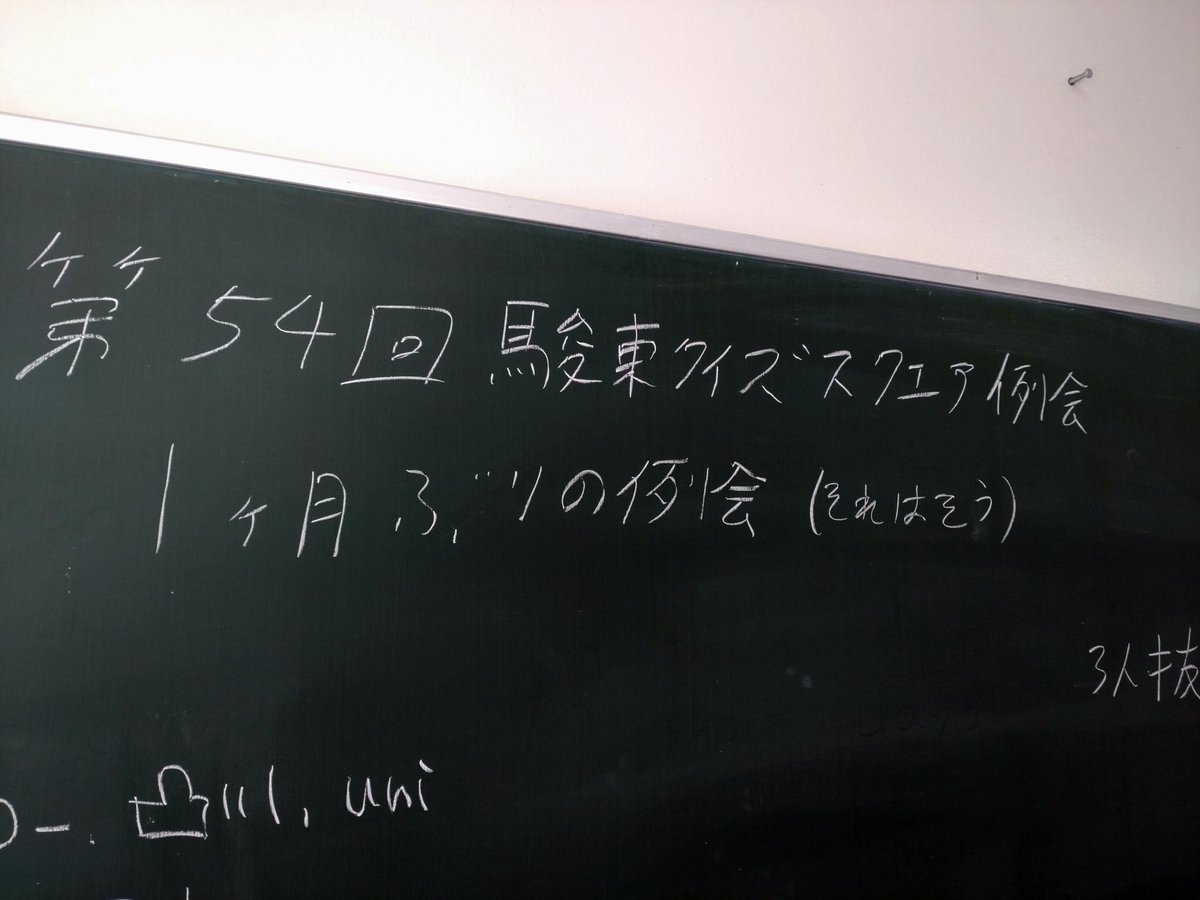 第54回 駿東クイズスクエア例会
1ヶ月ぶりの例会 (それはそう)
3人抜
凸川, uni